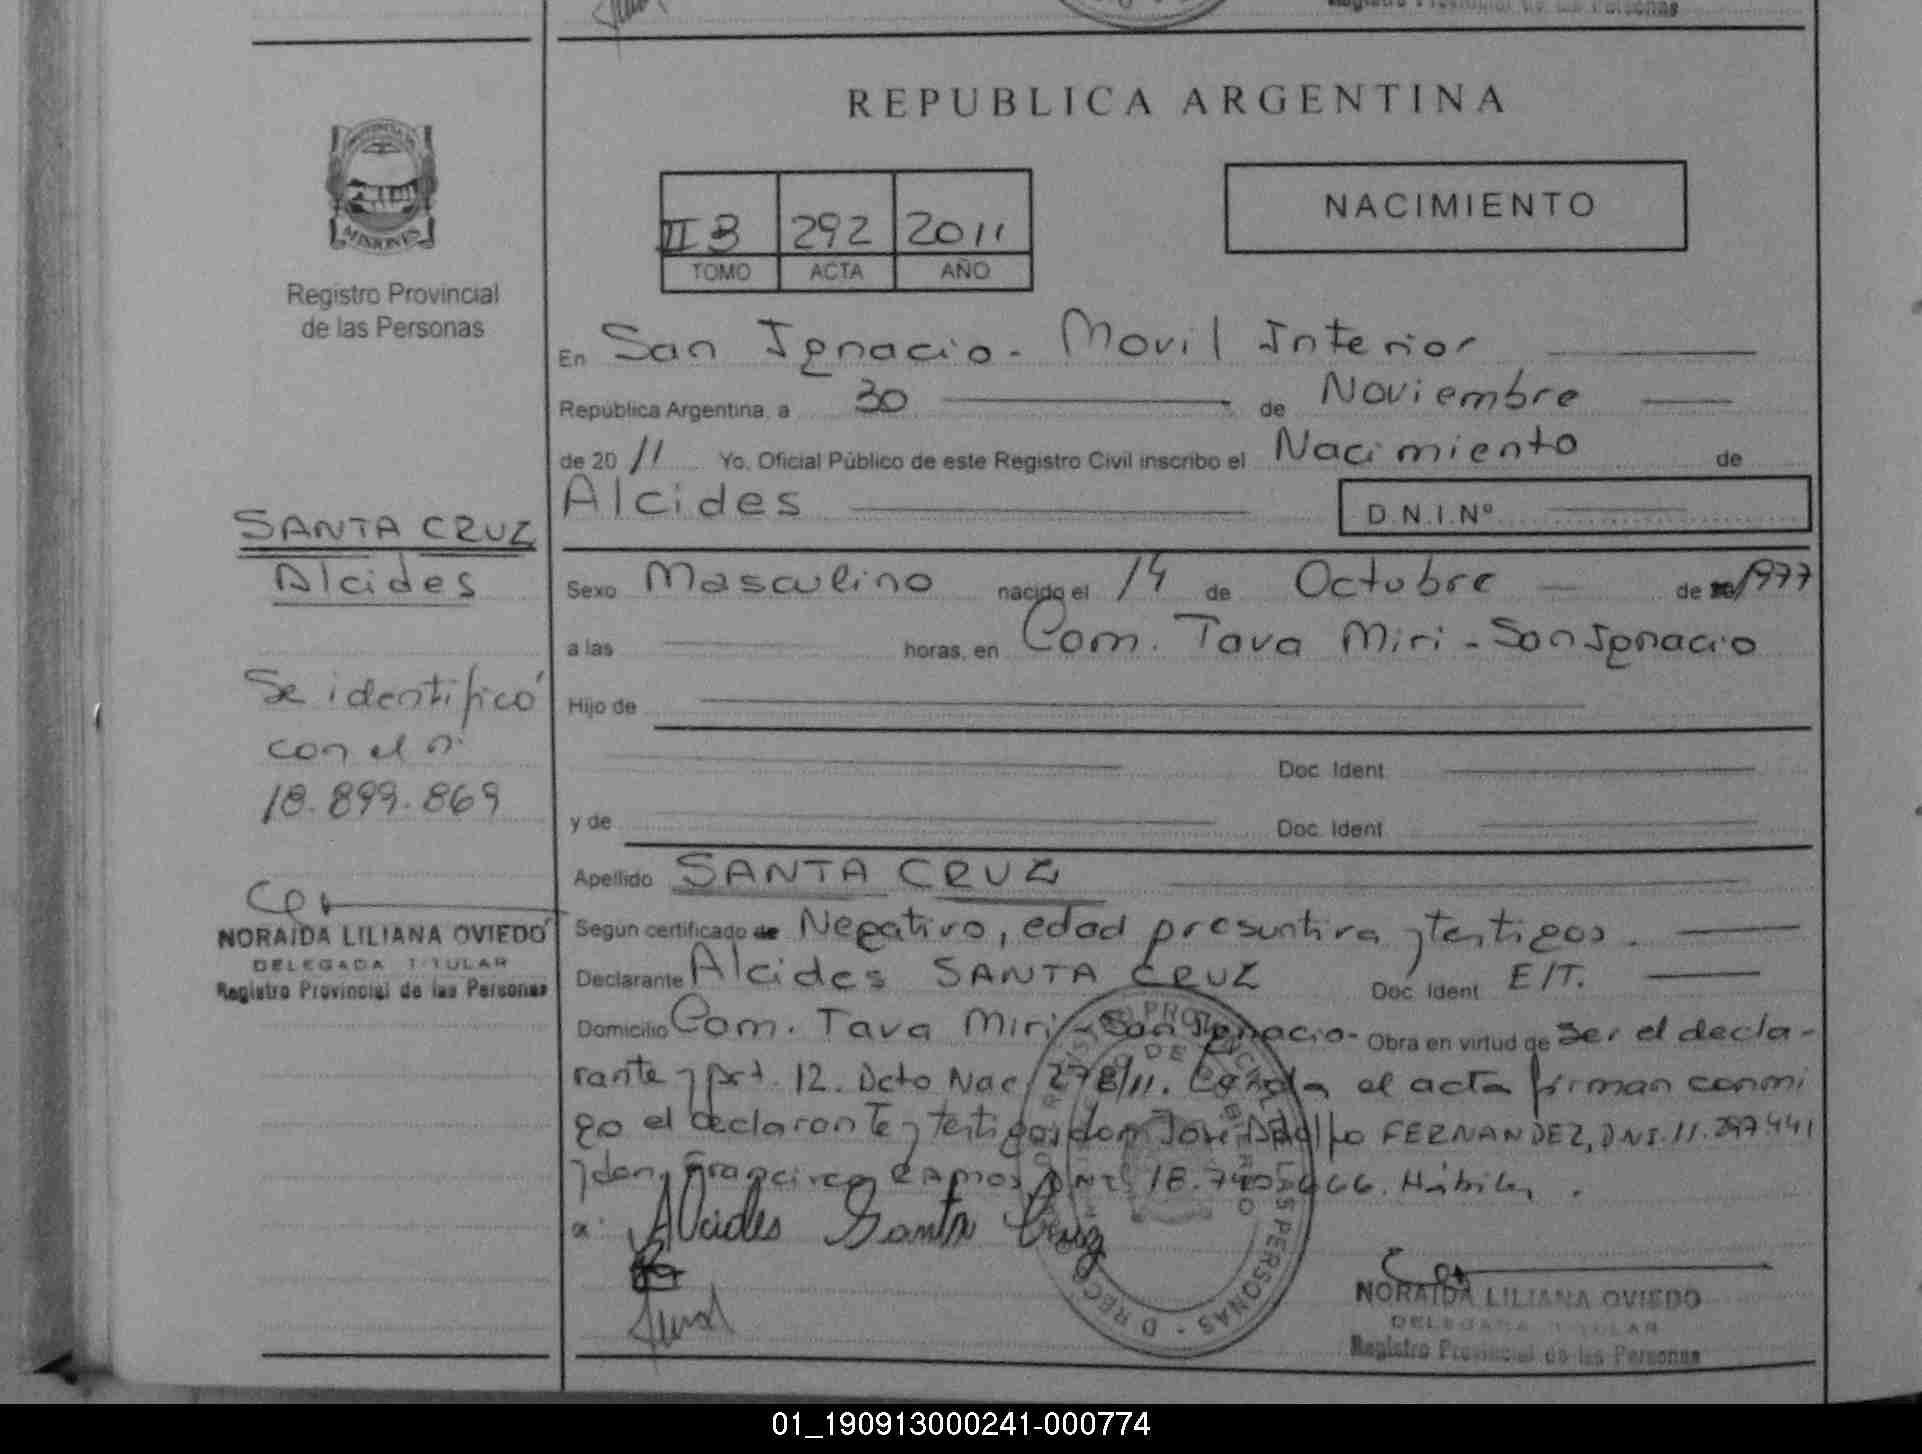 Registro Provincial de las Personas
REPUBLICA ARGENTINA
MISIONES
Registro Provincial
de las Personas
II B 292 2011
TOMO ACTA AÑO
NACIMIENTO
En San Ignacio - Movil Interior
República Argentina, a 30 de Noviembre
de 2011 Yo, Oficial Público de este Registro Civil inscribo el Nacimiento de
Alcides D.N.I.Nº
SANTA CRUZ
Alcides
Sexo Masculino nacido el 14 de Octubre de 1977
a las horas, en Com. Tava Miri - San Ignacio
Se identificó
con el nº
18.899.869
Hijo de
Doc. Ident
y de Doc. Ident
Apellido SANTA CRUZ
NORAIDA LILIANA OVIEDO
DELEGADA TITULAR
Registro Provincial de las Personas
Según certificado de Negativo, edad presuntiva y testigos.
Declarante Alcides SANTA CRUZ Doc. Ident E/T.
Domicilio Com. Tava Miri - San Ignacio - Obra en virtud de ser el decla-
rante y art. 12. Dcto Nac. 278/11. el acta firman conmi
go el declarante y testigos don José Adolfo FERNANDEZ, DNI. 11.297.441
y don Francisco RAMOS DNI 18. Hábiles.
Alcides Santa Cruz
NORAIDA LILIANA OVIEDO
DELEGADA TITULAR
Registro Provincial de las Personas
01_190913000241-000774